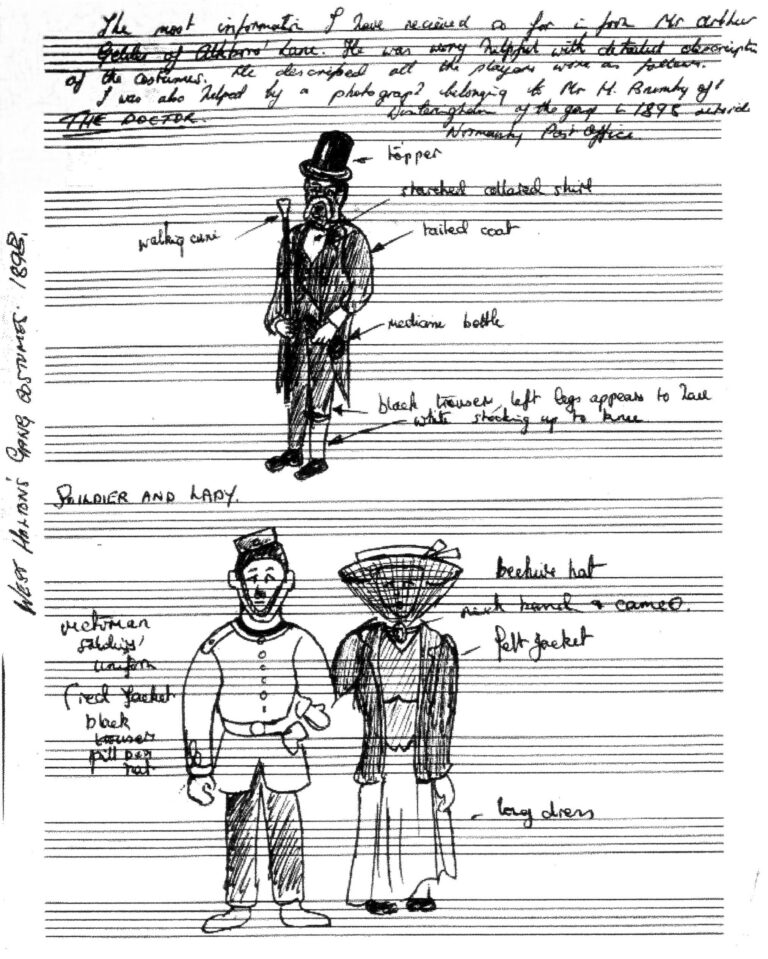 The most informatin I have recieved so far is from Mr Arthur
of Alkboro' Lane. He was very helpful with detailed descriptn
of the costumes. He described all the players were as follows.
I was also helped by a photograph belonging to Mr H. Brumby of
Winteringham of the gang in 1898 outside
THE DOCTOR.
Normanby Post Office
topper
starched collared shirt
walking cane
tailed coat
medicine bottle
black trousers, left legs appears to have
white stocking up to knee
WEST HALTON'S GANG COSTUMES. 1898.
SOLDIER AND LADY.
beehive hat
neck band & cameo.
felt jacket
victorian
soldiers'
uniform
(red jacket
black
trouser
pill box
hat
long dress